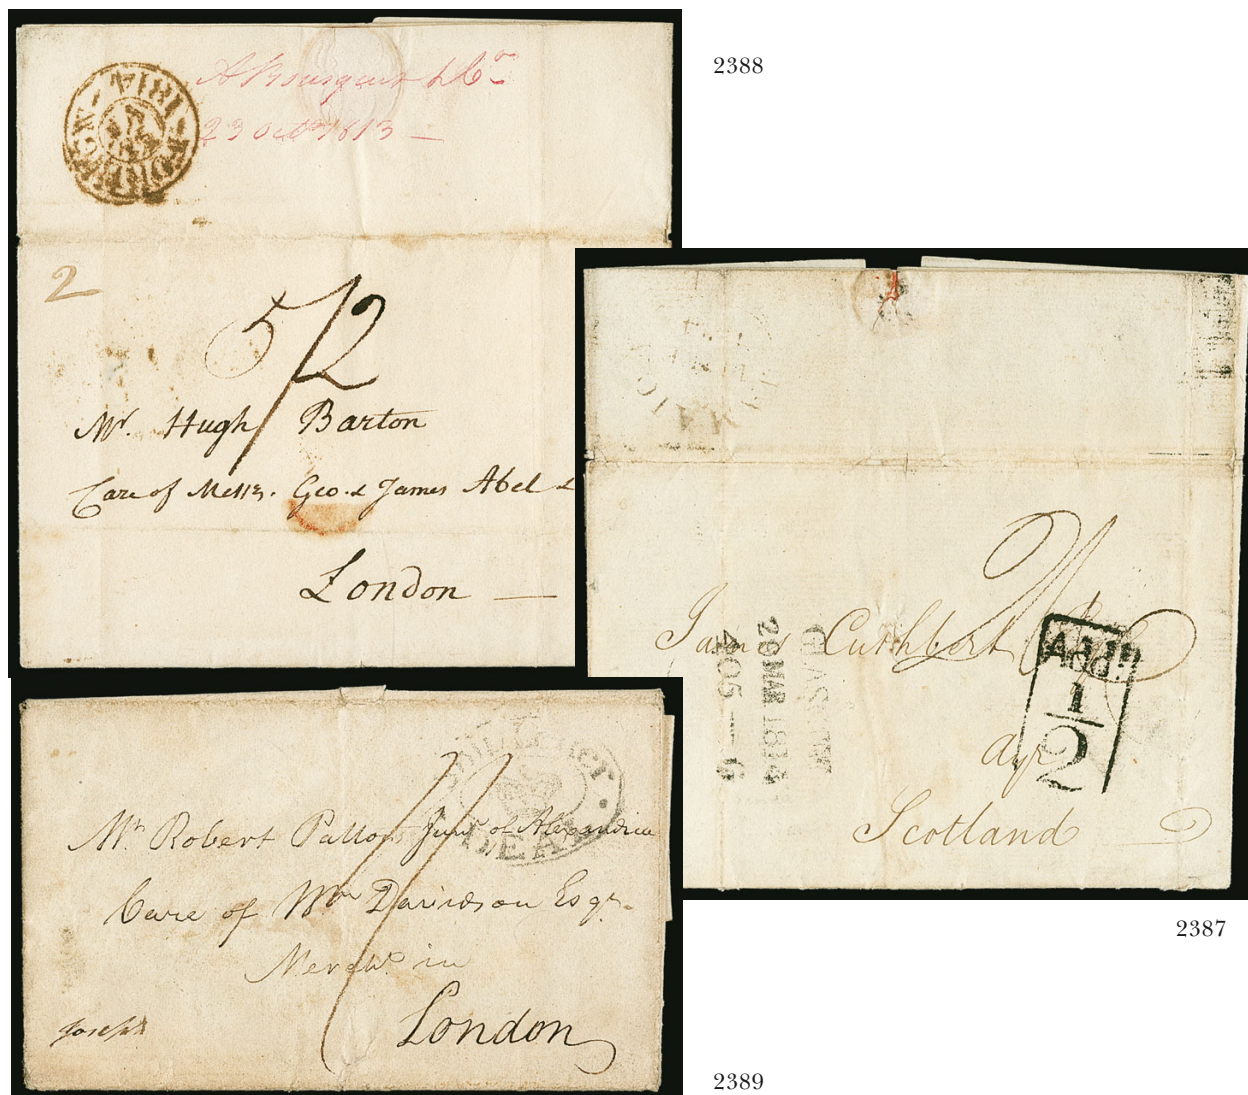 2388
FOREIGN
1814
23 Octr 1813 —
2
5/2
Mr. Hugh Barton
Care of Messrs. Geo. & James Abel &
London —
JAMAICA
James Cuthbert
Ayr
Scotland
GLASGOW
20 MAR 1814
405 — G
Addl.
1
2
2387
Ship Letter
DEAL
Mr Robert Patton Junr of Alexandria
Care of Wm Davidson Esqr.
Mercht in
London
Joseph
2389